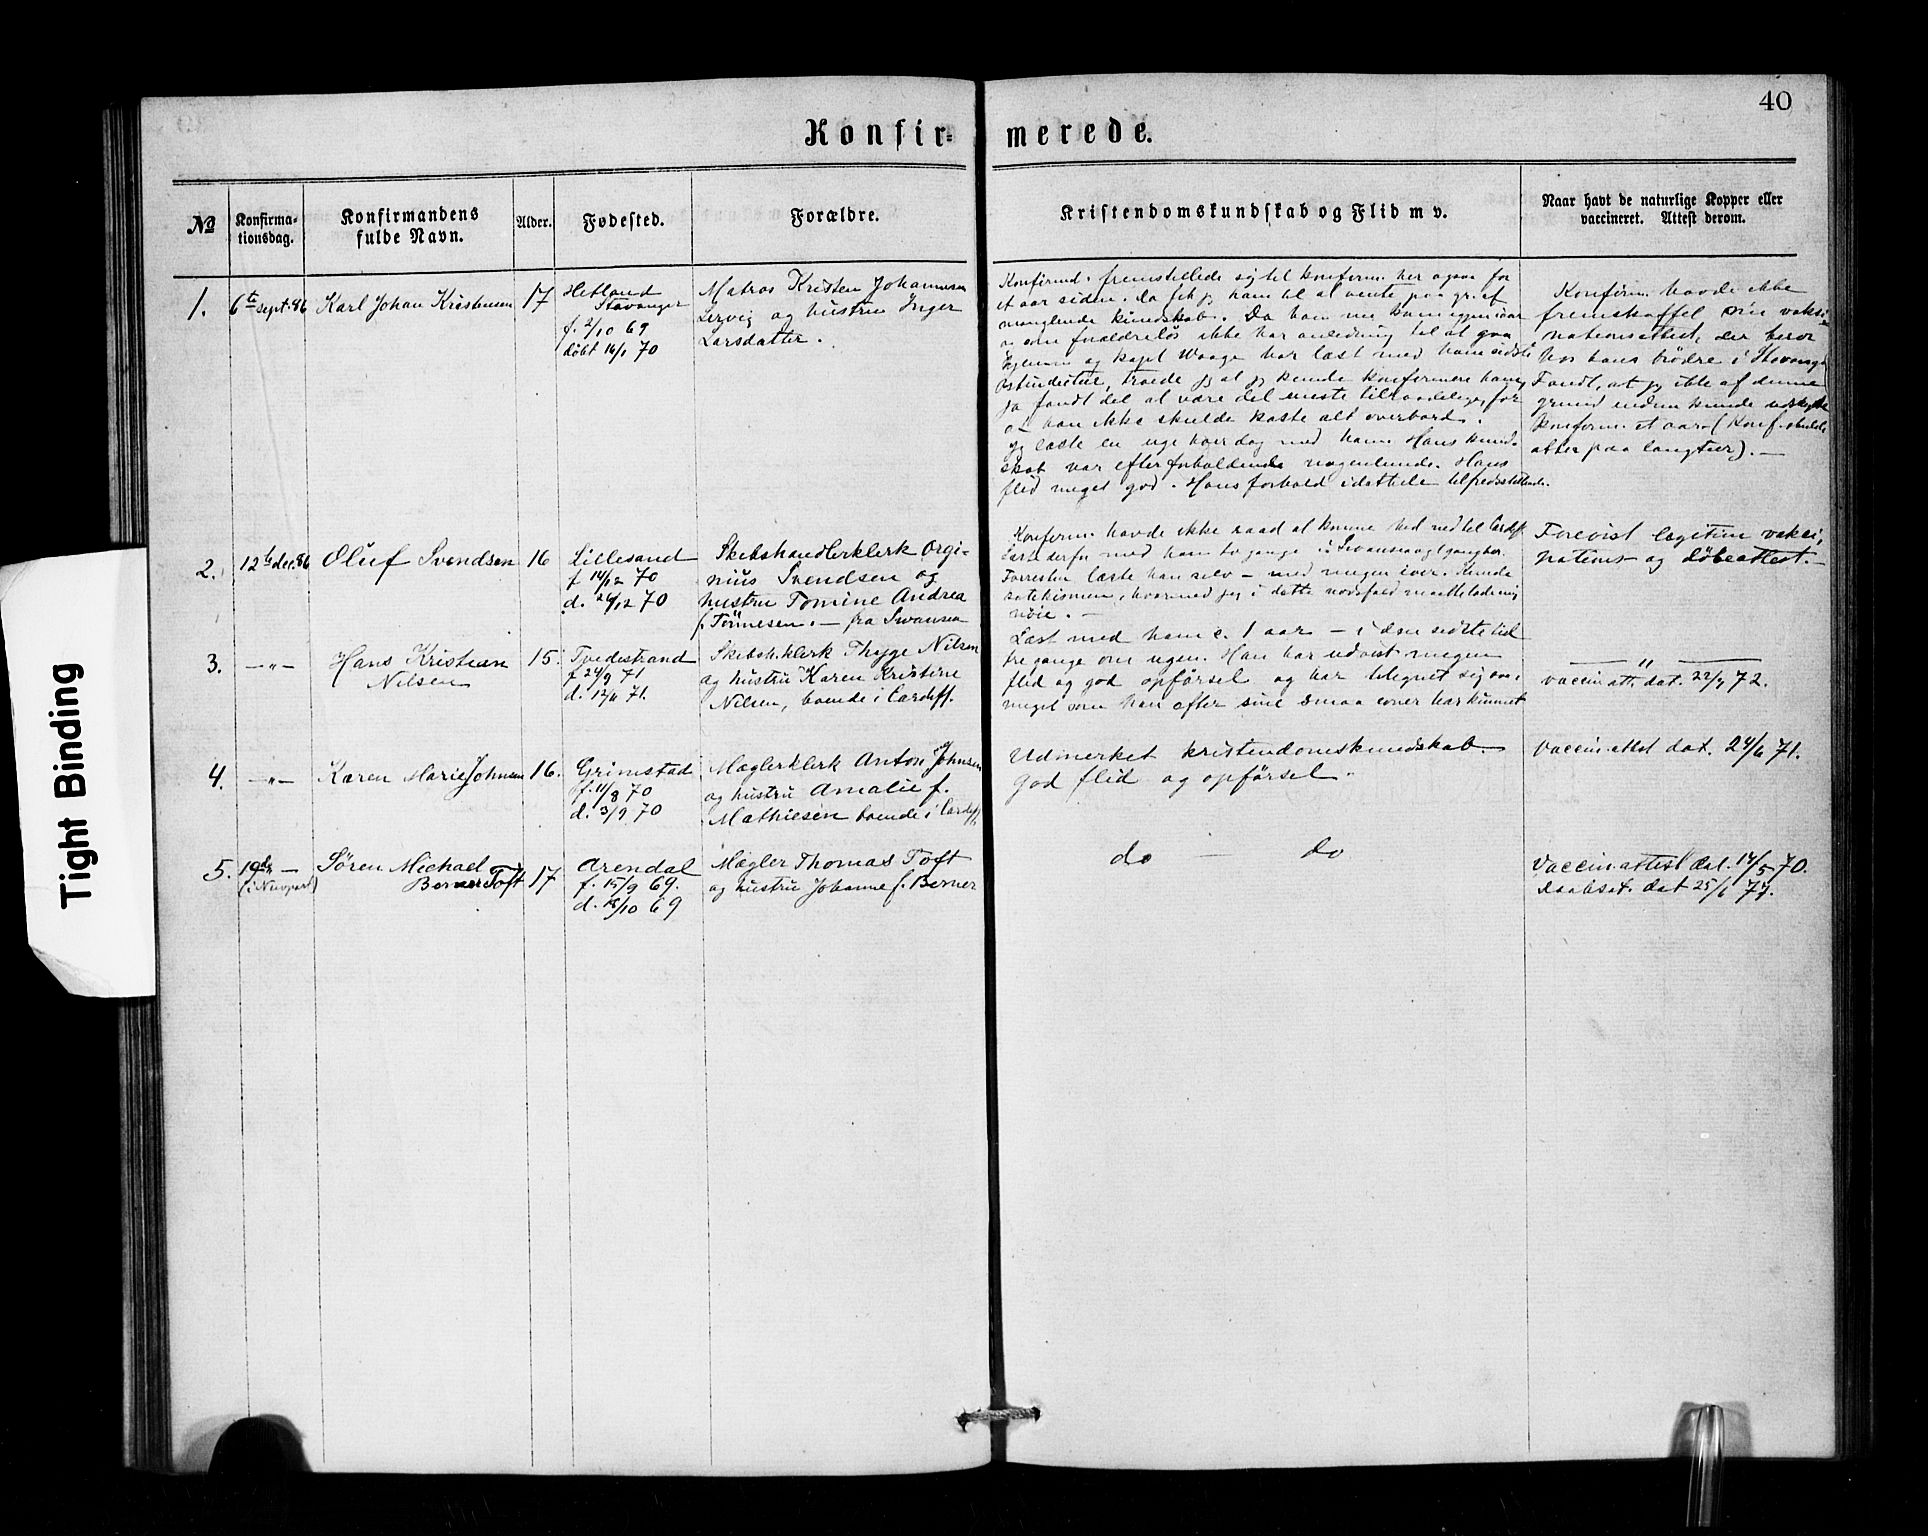 40
Konfir-
merede.
No
Konfirma-
tionsdag.
Konfirmandens
fulde Navn.
Alder.
Fødested.
Forældre.
Kristendomskundskab og Flid m v.
Naar havt de naturlige Kopper eller
vaccineret. Attest derom.
1.
6te sept. 86
Karl Johan Kristensen
17
Hetland
Stavanger
f. 2/10 69
döbt 16/1 70
Matros Kristen Johannesen
Lervig og hustru Inger
Larsdatter.
Konfirmd. fremstillede sig til konfirm. her ogsaa for
et aar siden. Da fik jeg ham til at vente paa gr. af
manglende kundskab. Da han nu kom igjen iaar
og som forældrelös ikke har anledning til at gaa
hjemom og kapt Waage har læst med ham sidste
Ostindietur, troede jeg at jeg kunde konfirmere ham,
ja fandt det at være det eneste tilraadelige, for
at han ikke skulde kaste alt overbord.
Jeg læste en uge hver dag med ham. Hans kund-
skab var efter forholdende nogenlunde. Hans
flid meget god. Hans forhold i dethele tilfredsstillende.
Konfirm. havde ikke
fremskaffet sin vaksi-
nationsattest, der beror
hos hans brödre i Stavanger
Fandt, at jeg ikke af denne
grund endnu kunde udskyde
konfirm. et aar (Konf. skulde
atter paa langtur). —
2.
12te dec. 86
Oluf Svendsen
16
Lillesand
f 14/12 70
d. 26/12 70
Skibshandlerklerk Orgi-
nius Svendsen og
hustru Tomine Andrea
f. Tönnesen. — fra Swansea
Konfirm. havde ikke raad at komme hid ned til Cardiff
Læste derfor med ham to gange i Swansea og 1 gang her.
Forresten læste han selv — med megen iver. Kunde
katekismen, hvormed jeg i dette nödsfald maatte lade mig
nöie. —
Forevist legitim vaksi-
nations- og döbeattest. —
3.
— " —
Hans Kristian
Nilsen
15.
Tvedestrand
f 24/9 71
d. 12/11 71.
Skibsh.klerk Thyge Nilsen
og hustru Karen Kristine
Nilsen, boende i Cardiff.
Læst med ham c. 1 aar — i den sidste tid
fre gange om ugen. Han har udvist megen
flid og god opförsel og har tilegnet sig saa-
meget som han efter sine smaa evner har kunnet
— " —
vaccin att. dat. 22/7 72.
4.
— " —
Karen Marie Johnsen
16.
Grimstad
f. 11/8 70
d. 3/9 70
Mæglerklerk Anton Johnsen
og hustru Amalie f.
Mathiesen boende i Cardiff
Udmerket kristendomskundskab
god flid og opförsel.
Vaccin attest dat. 24/6 71.
5.
19de —
(i Newport)
Sören Michael
Berner Toft
17
Arendal
f. 15/9 69.
d. 18/10 69
Mægler Thomas Toft
og hustru Johanne f. Berner
do — do
Vaccin attest dat. 14/5 70.
Daabsat. dat 25/6 77.
Tight Binding